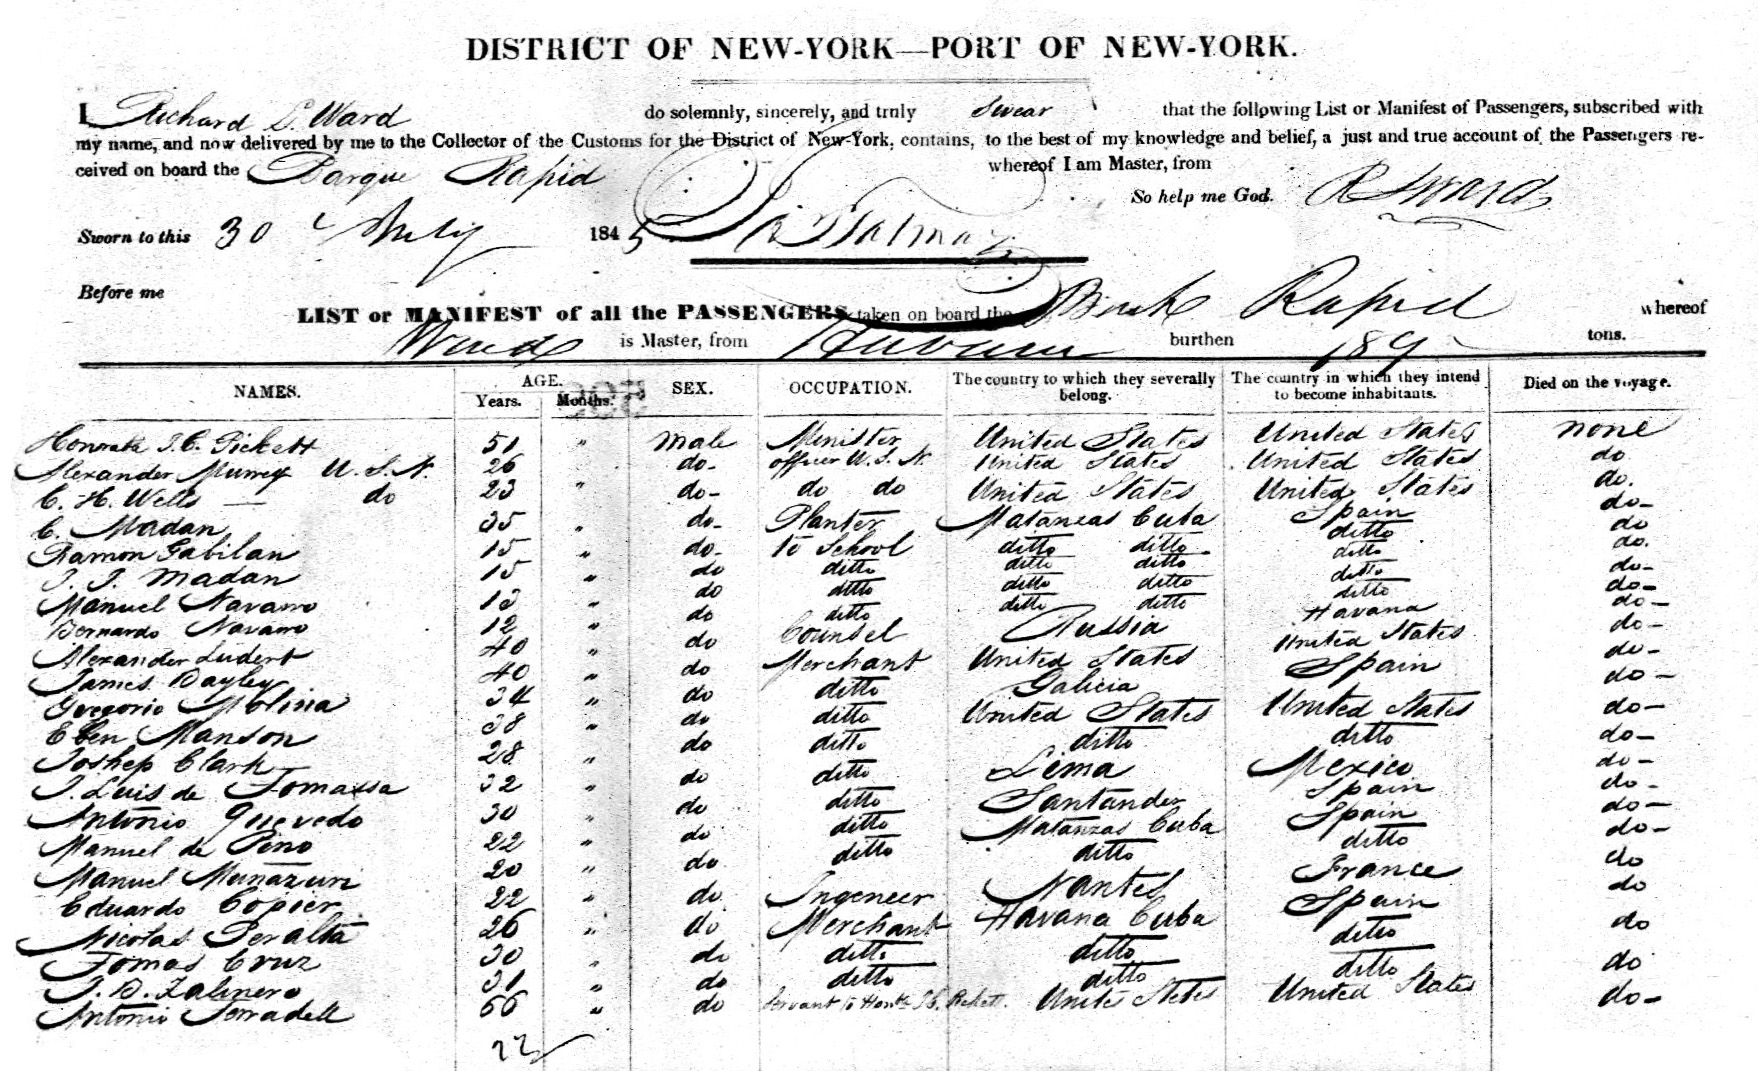 DISTRICT OF NEW-YORK—PORT OF NEW-YORK.
I Richard L. Ward do solemnly, sincerely, and truly Swear that the following List or Manifest of Passengers, subscribed with
my name, and now delivered by me to the Collector of the Customs for the District of New-York, contains, to the best of my knowledge and belief, a just and true account of the Passengers re-
ceived on board the Barque Rapid whereof I am Master, from
So help me God. R L Ward
Sworn to this 30 July 1845
Before me
LIST or MANIFEST of all the PASSENGERS taken on board the Bark Rapid whereof
Ward is Master, from Havana burthen 189 tons.
NAMES. AGE. Years. Months. SEX. OCCUPATION. The country to which they severally belong. The country in which they intend to become inhabitants. Died on the voyage.
Honrable J. C. Pickett 51 " male Minister United States United States none
Alexander Murrey U. S. N. 26 do- officer U. S. N. United States United States do
C. H. Wells — do 23 " do- do do United States United States do.
C. Madan 35 " do- Planter Matanzas Cuba Spain do-
Ramon Gabilan 15 " do- to School ditto ditto ditto do
J. J. Madan 15 " do ditto ditto ditto ditto do.
Manuel Navarro 13 " do ditto ditto ditto ditto do-
Bernardo Navarro 12 " do ditto ditto ditto ditto do-
Alexander Ludert 40 " do Counsel Russia Havana do-
James Bayley 40 " do Merchant United States United States do-
Gregorio Molina 34 " do ditto Galicia Spain do-
Eben Manson 38 " do ditto United States United States do-
Joshep Clark 28 " do ditto ditto ditto do-
J. Luis de Tomassa 32 " do ditto Lima Mexico do-
Antonio Quevedo 30 " do ditto Santander Spain do-
Manuel de Pino 22 " do ditto Matanzas Cuba Spain do-
Manuel Munazuri 20 " do ditto ditto ditto do-
Eduardo Copier 22 " do Ingeneer Nantes France do
Nicolas Peralta 26 " do Merchant Havana Cuba Spain do
Tomas Cruz 30 " do ditto ditto ditto do
J. B. 31 " do ditto ditto ditto do
Antonio Terradell 66 " do Servant to Honle J. C. Pickett. United States United States do-
22